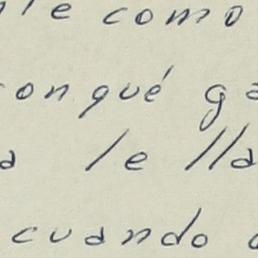 le como
conqué ga
a le lla
cuando